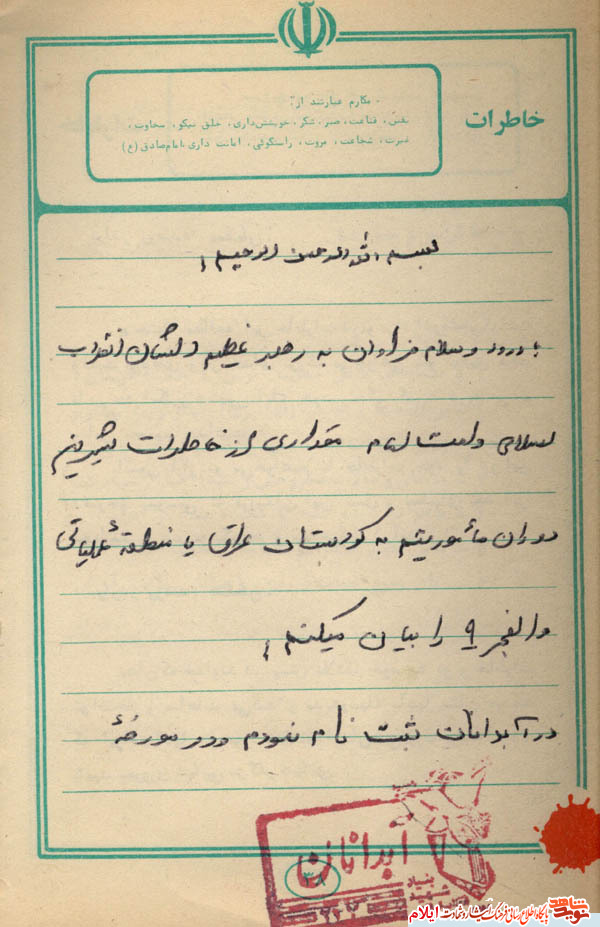 خاطرات
مکارم عبارتند از:
یقین، قناعت، صبر، شکر، خویشتن‌داری، خلق نیکو، سخاوت،
غیرت، شجاعت، مروت، راستگوئی، امانت داری، امام صادق (ع)
بسم الله الرحمن الرحیم
با درود و سلام فراوان به رهبر عظیم الشان انقلاب
اسلامی و امت امام مقداری از خاطرات شیرین
دوران مأموریتم به کردستان عراق یا منطقهٔ عملیاتی
والفجر ۹ را بیان میکنم
در آبدانان ثبت نام نمودم و در مورخهٔ
آبدانان
بنیاد
شهید
۳۸
نوید شاهد
پایگاه اطلاع رسانی فرهنگ ایثار و شهادت ایلام